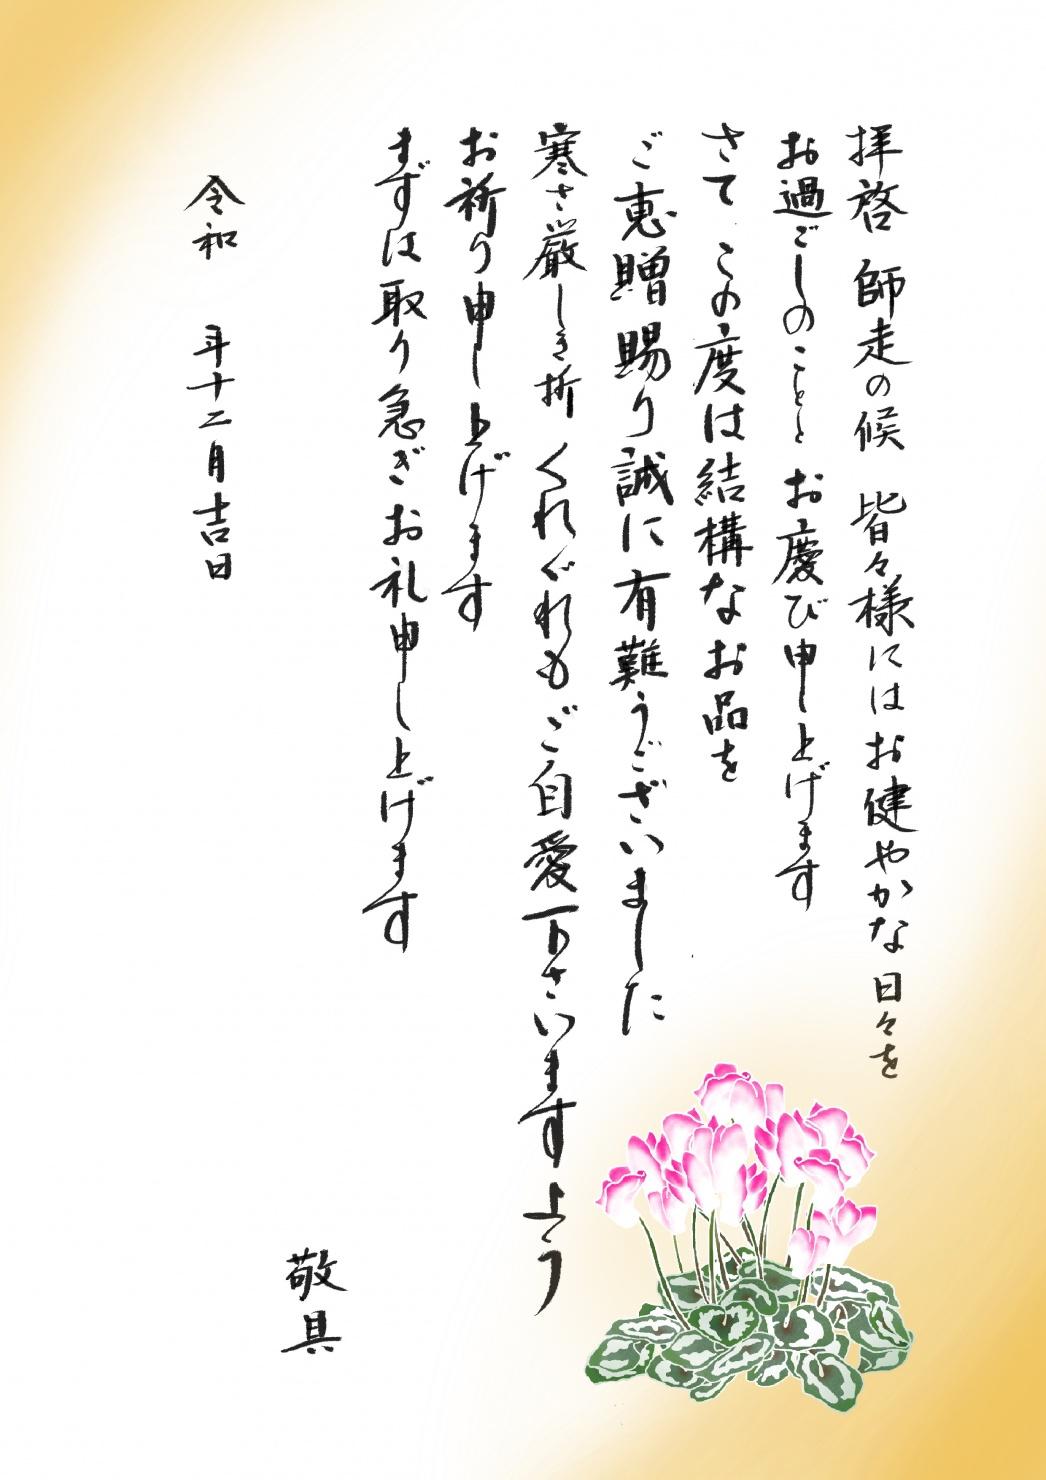 拝啓 師走の候 皆々様にはお健やかな日々を
お過ごしのこととお慶び申し上げます
さて この度は結構なお品を
ご恵贈賜り誠に有難うございました
寒さ厳しき折 くれぐれもご自愛下さいますよう
お祈り申し上げます
まずは取り急ぎお礼申し上げます
敬具
令和 年十二月吉日